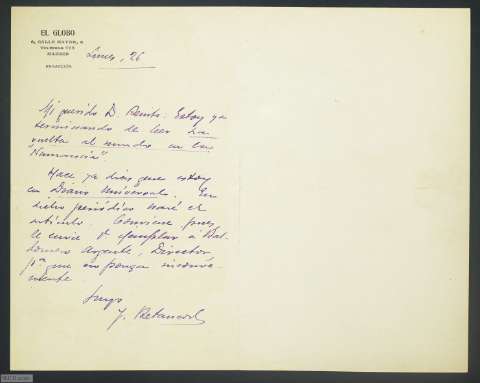 EL GLOBO
8, CALLE MAYOR, 6
MADRID
REDACCIÓN
Lunes, 26
Mi querido D. Benito: Estoy ya
terminando de leer La
vuelta al mundo en la
Numancia".
Hace ya días que estoy
en Diario Universal. En
dicho periódico haré el
artículo. Conviene pues
le envie Vd ejemplar á Bal-
domero Argente, Director,
pª que no ponga inconve-
niente.
Suyo
J. Betancort